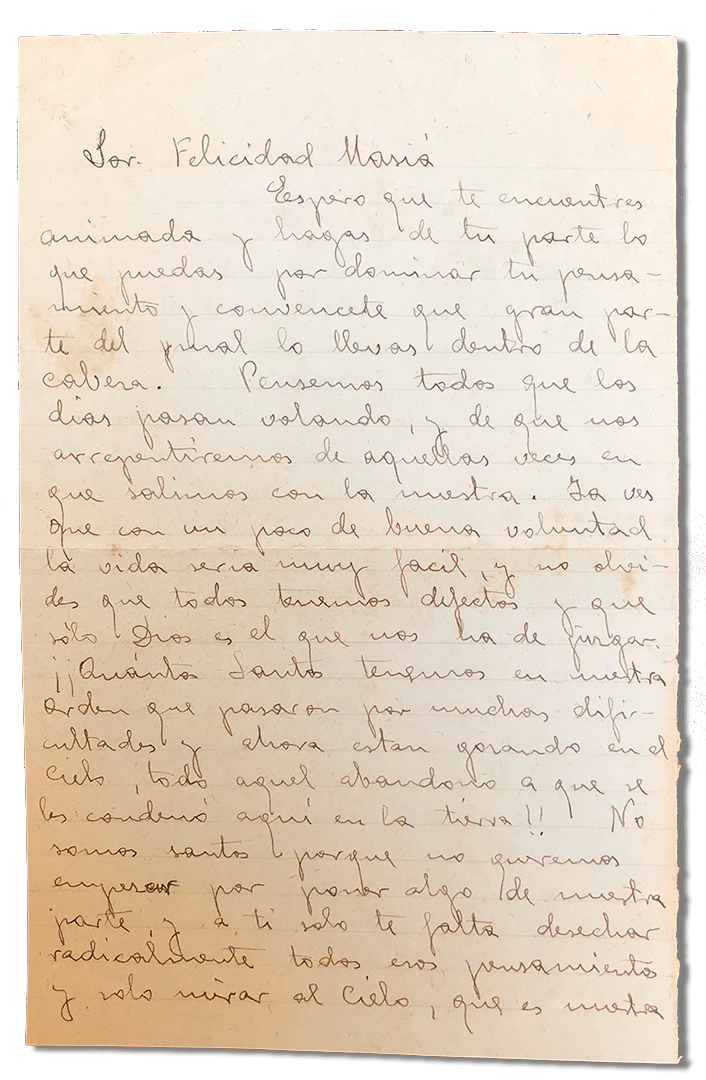 Sor. Felicidad Masiá
Espero que te encuentres
animada y hagas de tu parte lo
que puedas por dominar tu pensa-
miento y convencete que gran par-
te del pinal lo llevas dentro de la
cabeza. Pensemos todos que los
dias pasan volando, y de que nos
arrepentiremos de aquellas veces en
que salimos con la nuestra. Ya ves
que con un poco de buena voluntad
la vida seria muy facil, y no olvi-
des que todos tenemos defectos y que
sólo Dios es el que nos ha de juzgar.
¡¡Cuántos Santos tenemos en nuestra
orden que pasaron por muchas difi-
cultades y ahora estan gozando en el
Cielo, todo aquel abandono a que se
les condenó aquí en la tierra!! No
somos santos porque no queremos
empezar por poner algo de nuestra
parte, y a ti solo te falta desechar
radicalmente todos esos pensamientos
y solo mirar al Cielo, que es nuestra